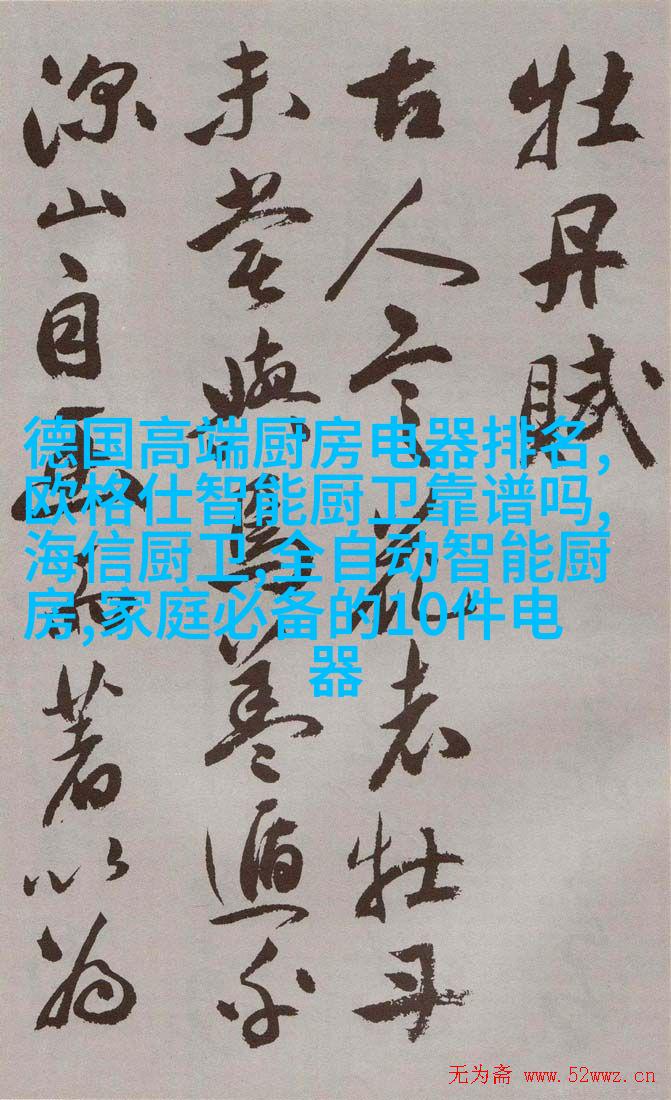 牡丹賦
古人言花者牡丹
未嘗與焉蓋遁乎
深山自幽而著以為
德国高端厨房电器排名,
欧格仕智能厨卫靠谱吗,
海信厨卫,全自动智能厨
房,家庭必备的10件电
器
无为斋 www.52wwz.cn